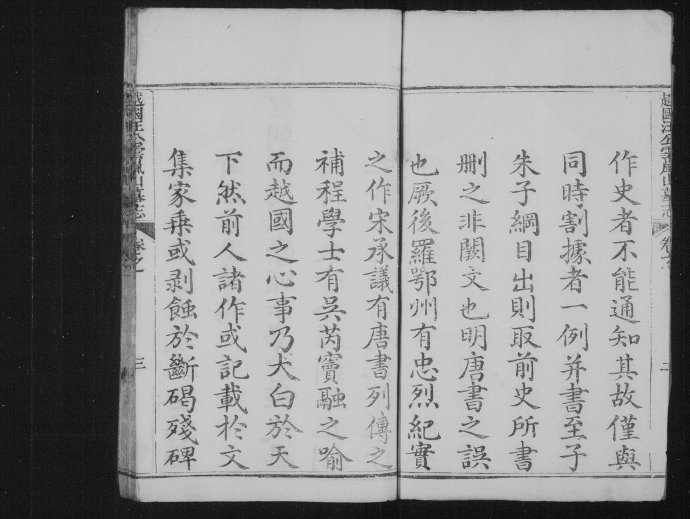 作史者不能通知其故僅與
同時割據者一例并書至子
朱子綱目出則取前史所書
刪之非闕文也明唐書之誤
也厥後羅鄂州有忠烈紀實
之作宋承議有唐書列傳之
補程學士有吳芮竇融之喻
而越國之心事乃大白於天
下然前人諸作或記載於文
集家乗或剥蝕於斷碣殘碑
越國汪公雲嵐山墓志 卷之 二
越國汪公雲嵐山墓志 卷之 三